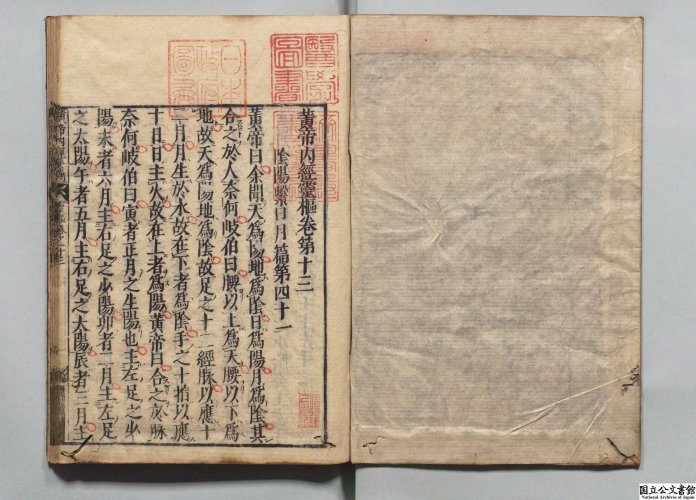 黃帝內經靈樞卷第十三
陰陽繫日月篇第四十一
黃帝曰余聞天爲陽地爲陰日爲陽月爲陰其
合之於人奈何岐伯曰腰以上爲天腰以下爲
地故天爲陽地爲陰故足之十二經脉以應十
二月月生於水故在下者爲陰手之十指以應
十日日主火故在上者爲陽黃帝曰合之於脉
奈何岐伯曰寅者正月之生陽也主左足之少
陽未者六月主右足之少陽卯者二月主左足
之太陽午者五月主右足之太陽辰者三月主
国立公文書館
National Archives of Japan